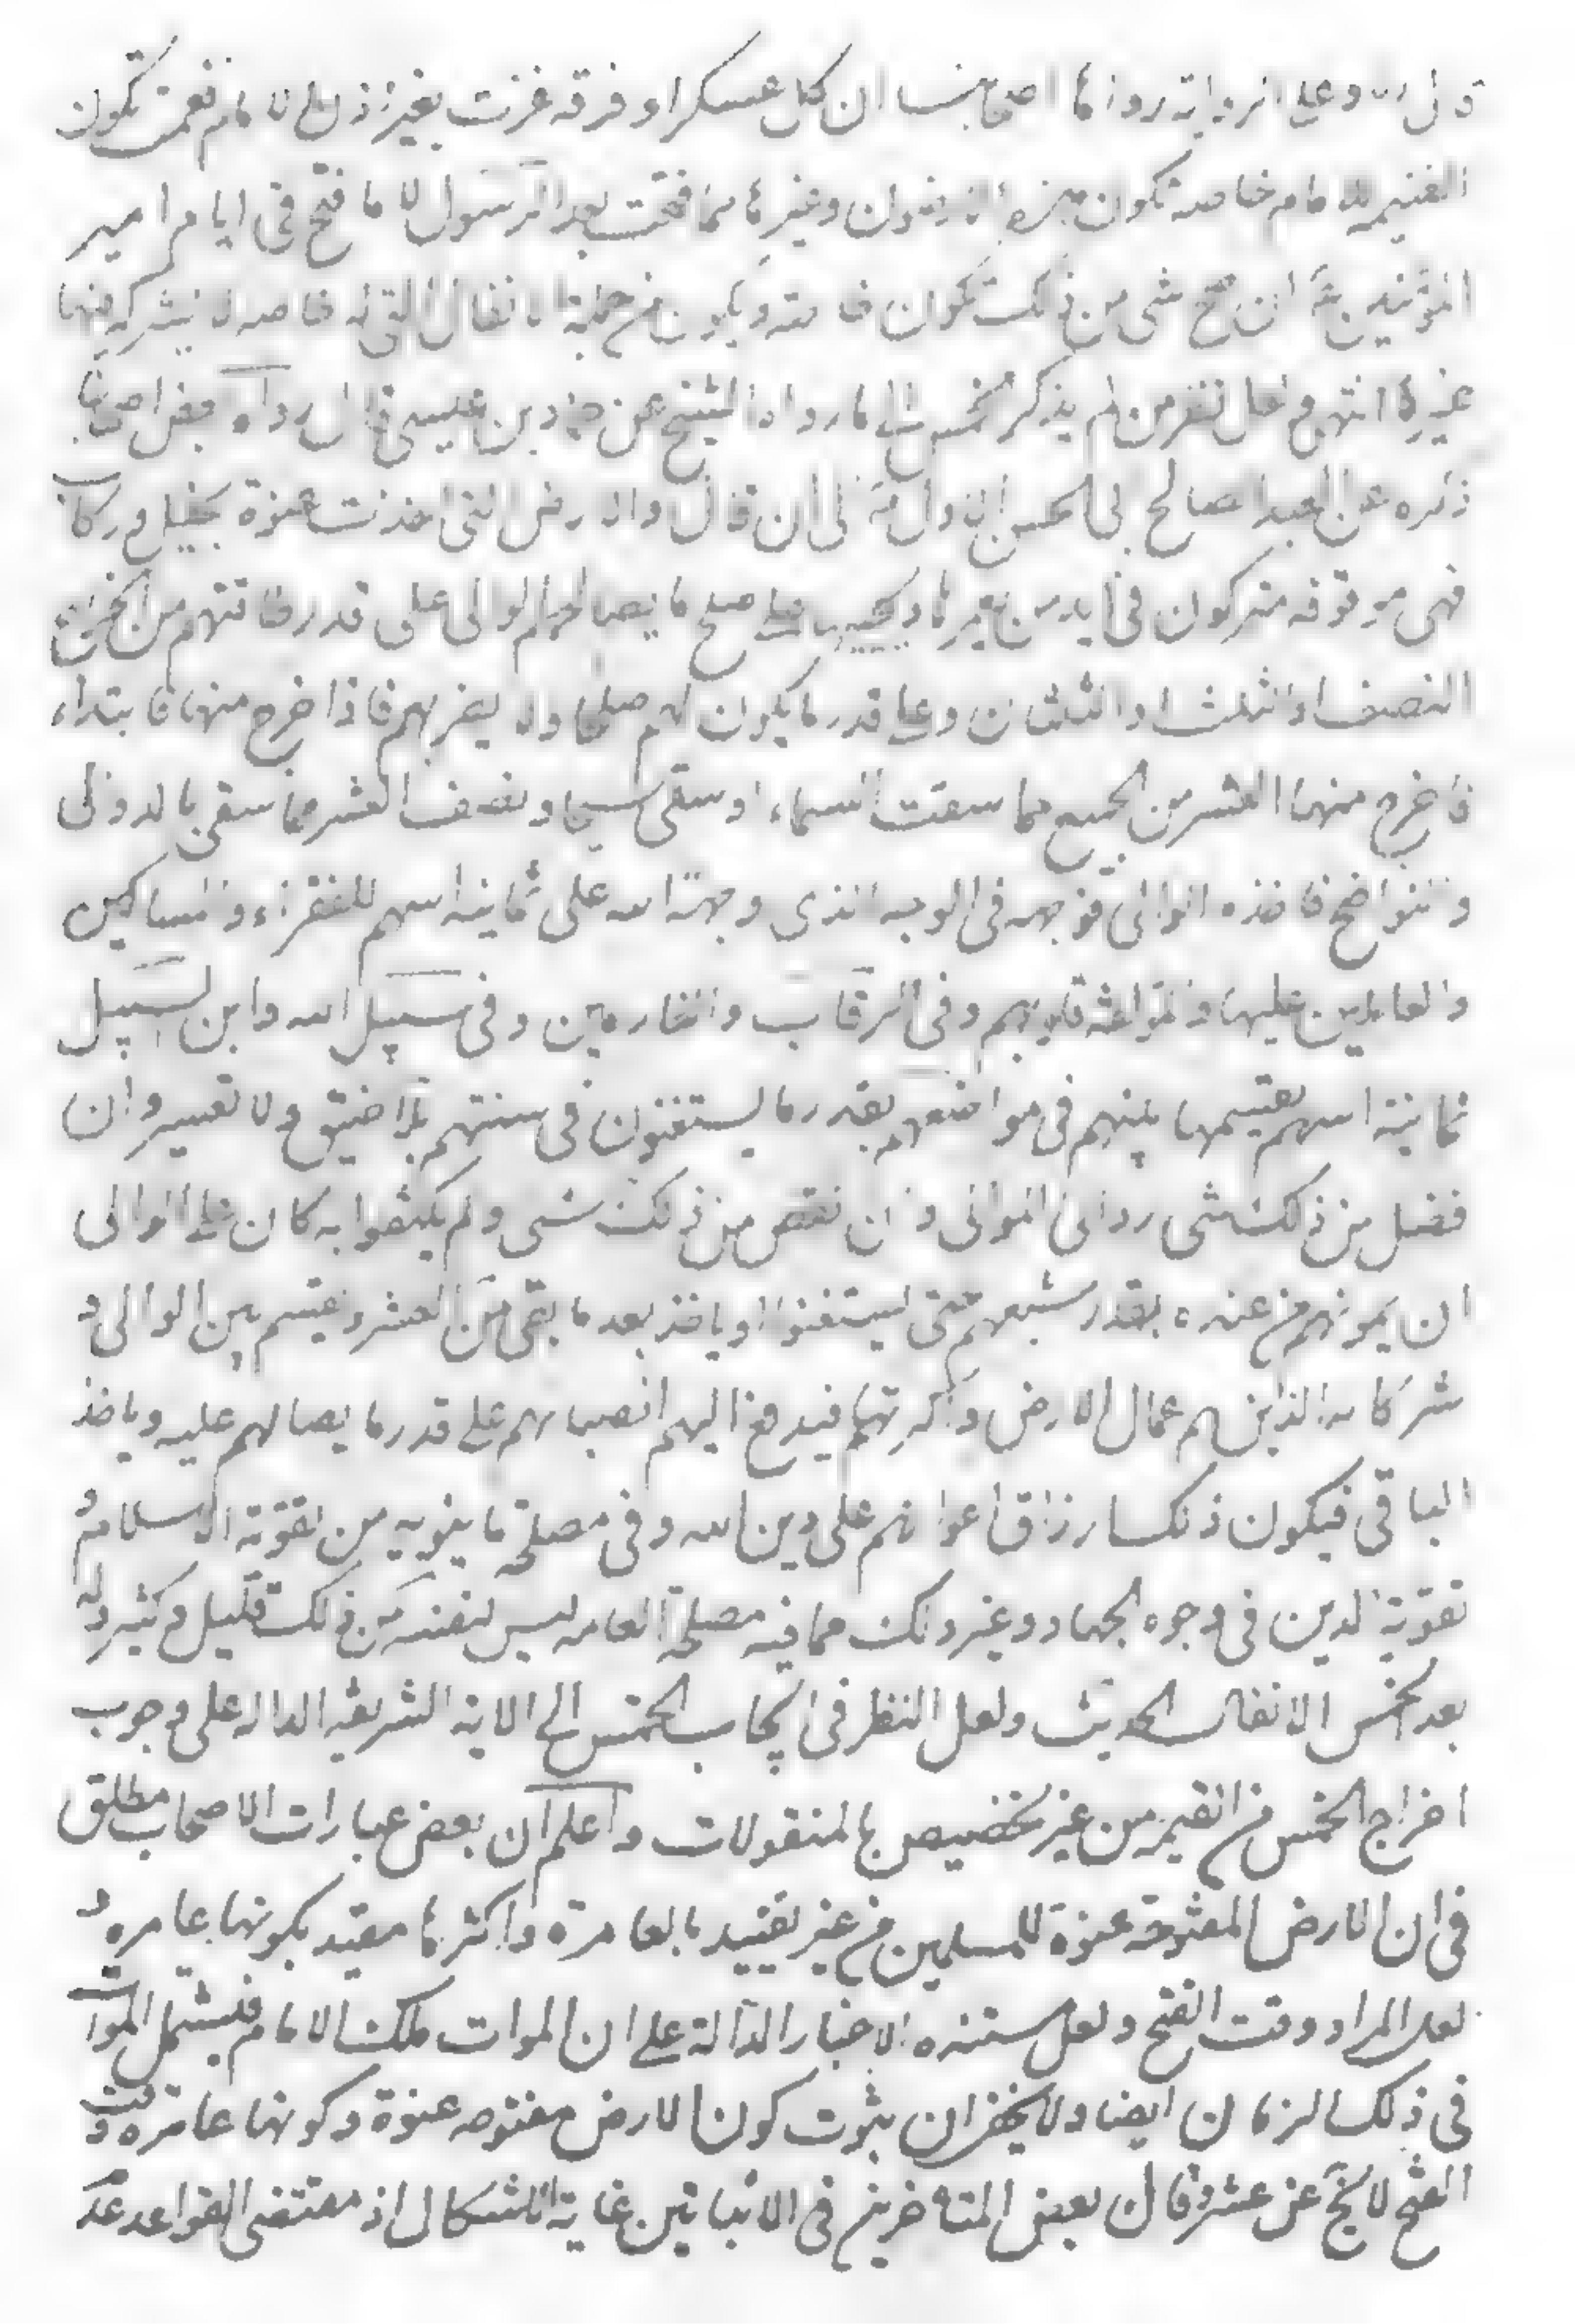 قال ره وعلى الرواية رواها اصحابنا ان كل عسكر او فرقه غزت بغير اذن الامام فغنمت تكون
الغنيمه للامام خاصه تكون هذه الارضون وغيرها مما فتحت بعد الرسول الا ما فتح في ايام امير
المؤمنين ع ان صح شي من ذلك تكون خاصته ويكون من جملة الانفال التي له خاصه لا يشركه فيها
غيره انتهى ولعل نظر من لم يذكر الخمس الى ما رواه الشيخ عن حماد بن عيسى قال رواه بعض اصحابنا
ذكره عن العبد الصالح ابي الحسن الاول ع الى ان قال والارض التى اخذت عنوة بخيل وركاب
فهى موقوفه متركون في ايدي من يعمرها ويحييها على صلح ما يصالحهم الوالى على قدر طاقتهم من الخراج
النصف او الثلث او الثلثان وعلى قدر ما يكون لهم صلاحا ولا يضر بهم فاذا خرج منها فابتداء
فاخرج منها العشر من الجميع مما سقت السماء او سقى سيحا ونصف العشر مما سقى بالدوالى
والنواضح فاخذه الوالى فوجهه فى الوجه الذى وجهه الله على ثمانية اسهم للفقراء والمساكين
والعاملين عليها والمؤلفة قلوبهم وفى الرقاب والغارمين وفى سبيل الله وابن السبيل
ثمانية اسهم يقسمها بينهم فى مواضعهم بقدر ما يستغنون فى سنتهم بلا ضيق ولا تقتير وان
فضل من ذلك شى رد الى الوالى وان نقص من ذلك شى ولم يكتفوا به كان على الوالى
ان يمونهم من عنده بقدر شبعهم حتى يستغنوا او ياخذ بعد ما بقى من العشر ويقسم بين الوالى و
شركائه الذين هم عمال الارض واكرتها فيدفع اليهم انصباءهم على قدر ما يصالحهم عليه وياخذ
الباقى فيكون ذلك ارزاق اعوانهم على دين الله وفى مصلحة ما ينوبه من تقوية الاسلام و
تقوية الدين فى وجوه الجهاد وغير ذلك مما فيه مصلحة العامه ليس لنفسه من ذلك قليل وكثير وله
بعد الخمس الانفال الحديث ولعل النظر فى ايجاب الخمس الى الاية الشريفه الداله على وجوب
اخراج الخمس من الغنيمة من غير تخصيص بالمنقولات واعلم ان بعض عبارات الاصحاب مطلق
فى ان الارض المفتوحة عنوة للمسلمين من غير تقييد بالعامرة واكثرها مقيد بكونها عامره و
لعل المراد وقت الفتح ولعل مستنده الاخبار الدالة على ان الموات ملك الامام فيشمل الموات
فى ذلك الزمان ايضا ولا يخفى ان ثبوت كون الارض مفتوحه عنوة وكونها عامره وقت
الفتح لا يخ عن عسر وقال بعض المتاخرين فى الاثباتين غاية الاشكال اذ مقتضى القواعد عد